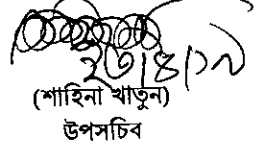 ২৩/৪/১৯
(শাহিনা খাতুন)
উপসচিব